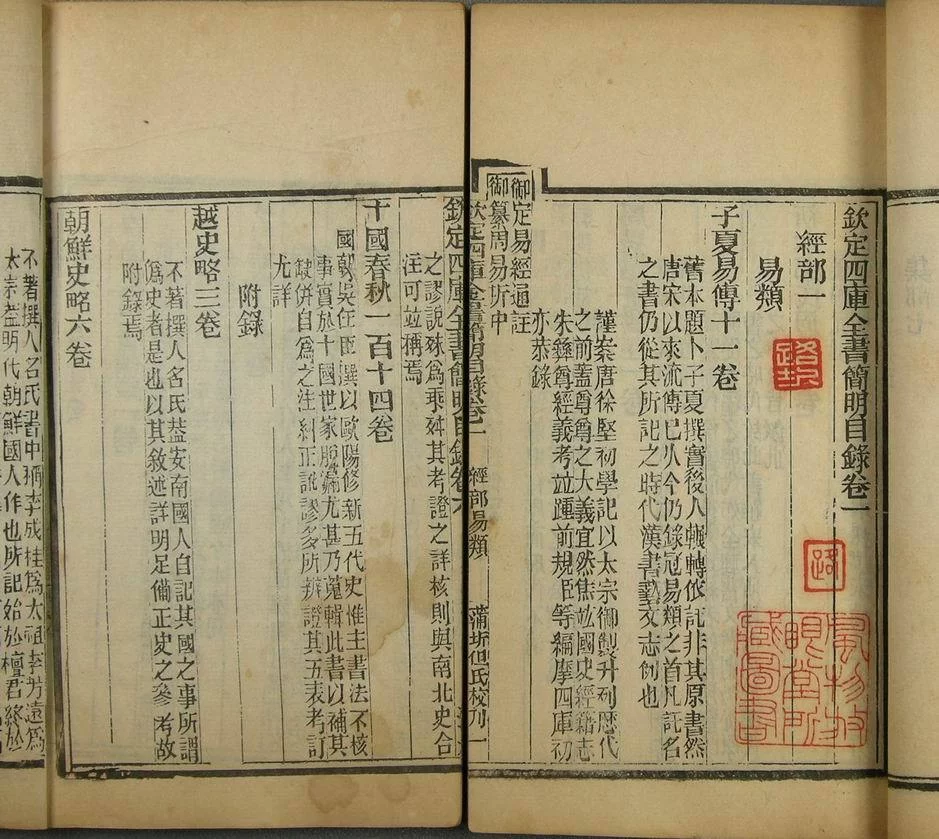 欽定四庫全書簡明目錄卷一
經部一
易類
子夏易傳十一卷
舊本題卜子夏撰實後人輾轉依託非其原書然
唐宋以來流傳已久今仍錄冠易類之首凡託名
之書仍從其所託之時代漢書藝文志例也
謹案唐徐堅初學記以太宗御製升列歷代
之前蓋尊尊之大義宜然焦竑國史經籍志
朱彝尊經義考竝踵前規臣等編摩四庫初
亦恭錄
御定易經通註
御纂周易折中
欽定四庫全書簡明目錄卷一 經部易類 蒲圻但氏校刋 一
欽定四庫全書簡明目錄卷六
之謬說殊為乖舛其考證之詳核則與南北史合
注可竝稱焉
十國春秋一百十四卷
國朝吳任臣撰以歐陽修新五代史惟主書法不核
事實於十國世家脫漏尤甚乃蒐輯此書以補其
缺併自為之注糾正訛謬多所辨證其五表考訂
尤詳
附錄
越史略三卷
不著撰人名氏葢安南國人自記其國之事所謂
偽史者是也以其敘述詳明足備正史之參考故
附錄焉
朝鮮史略六卷
不著撰人名氏書中稱李成桂為太祖李芳遠為
太宗葢明代朝鮮國人作也所記始於檀君終於